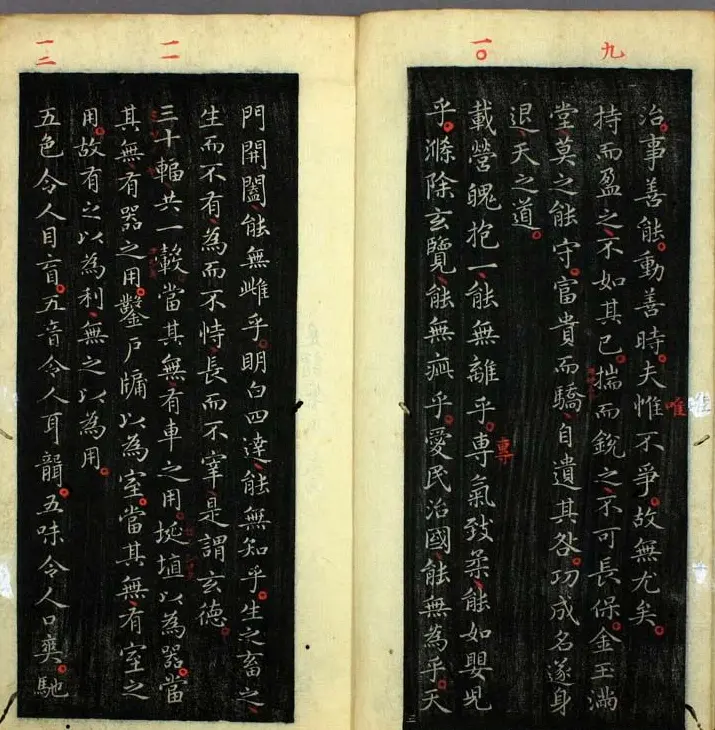 九
治事善能動善時夫惟不爭故無尤矣
唯
持而盈之不如其已揣而銳之不可長保金玉滿
堂莫之能守富貴而驕自遺其咎功成名遂身
退天之道
一〇
載營魄抱一能無離乎專氣致柔能如嬰兒
專
乎滌除玄覽能無疵乎愛民治國能無為乎天
門開闔能無雌乎明白四達能無知乎生之畜之
生而不有為而不恃長而不宰是謂玄德
一一
三十輻共一轂當其無有車之用埏埴以為器當
其無有器之用鑿戶牖以為室當其無有室之
用故有之以為利無之以為用
一二
五色令人目盲五音令人耳聾五味令人口爽馳